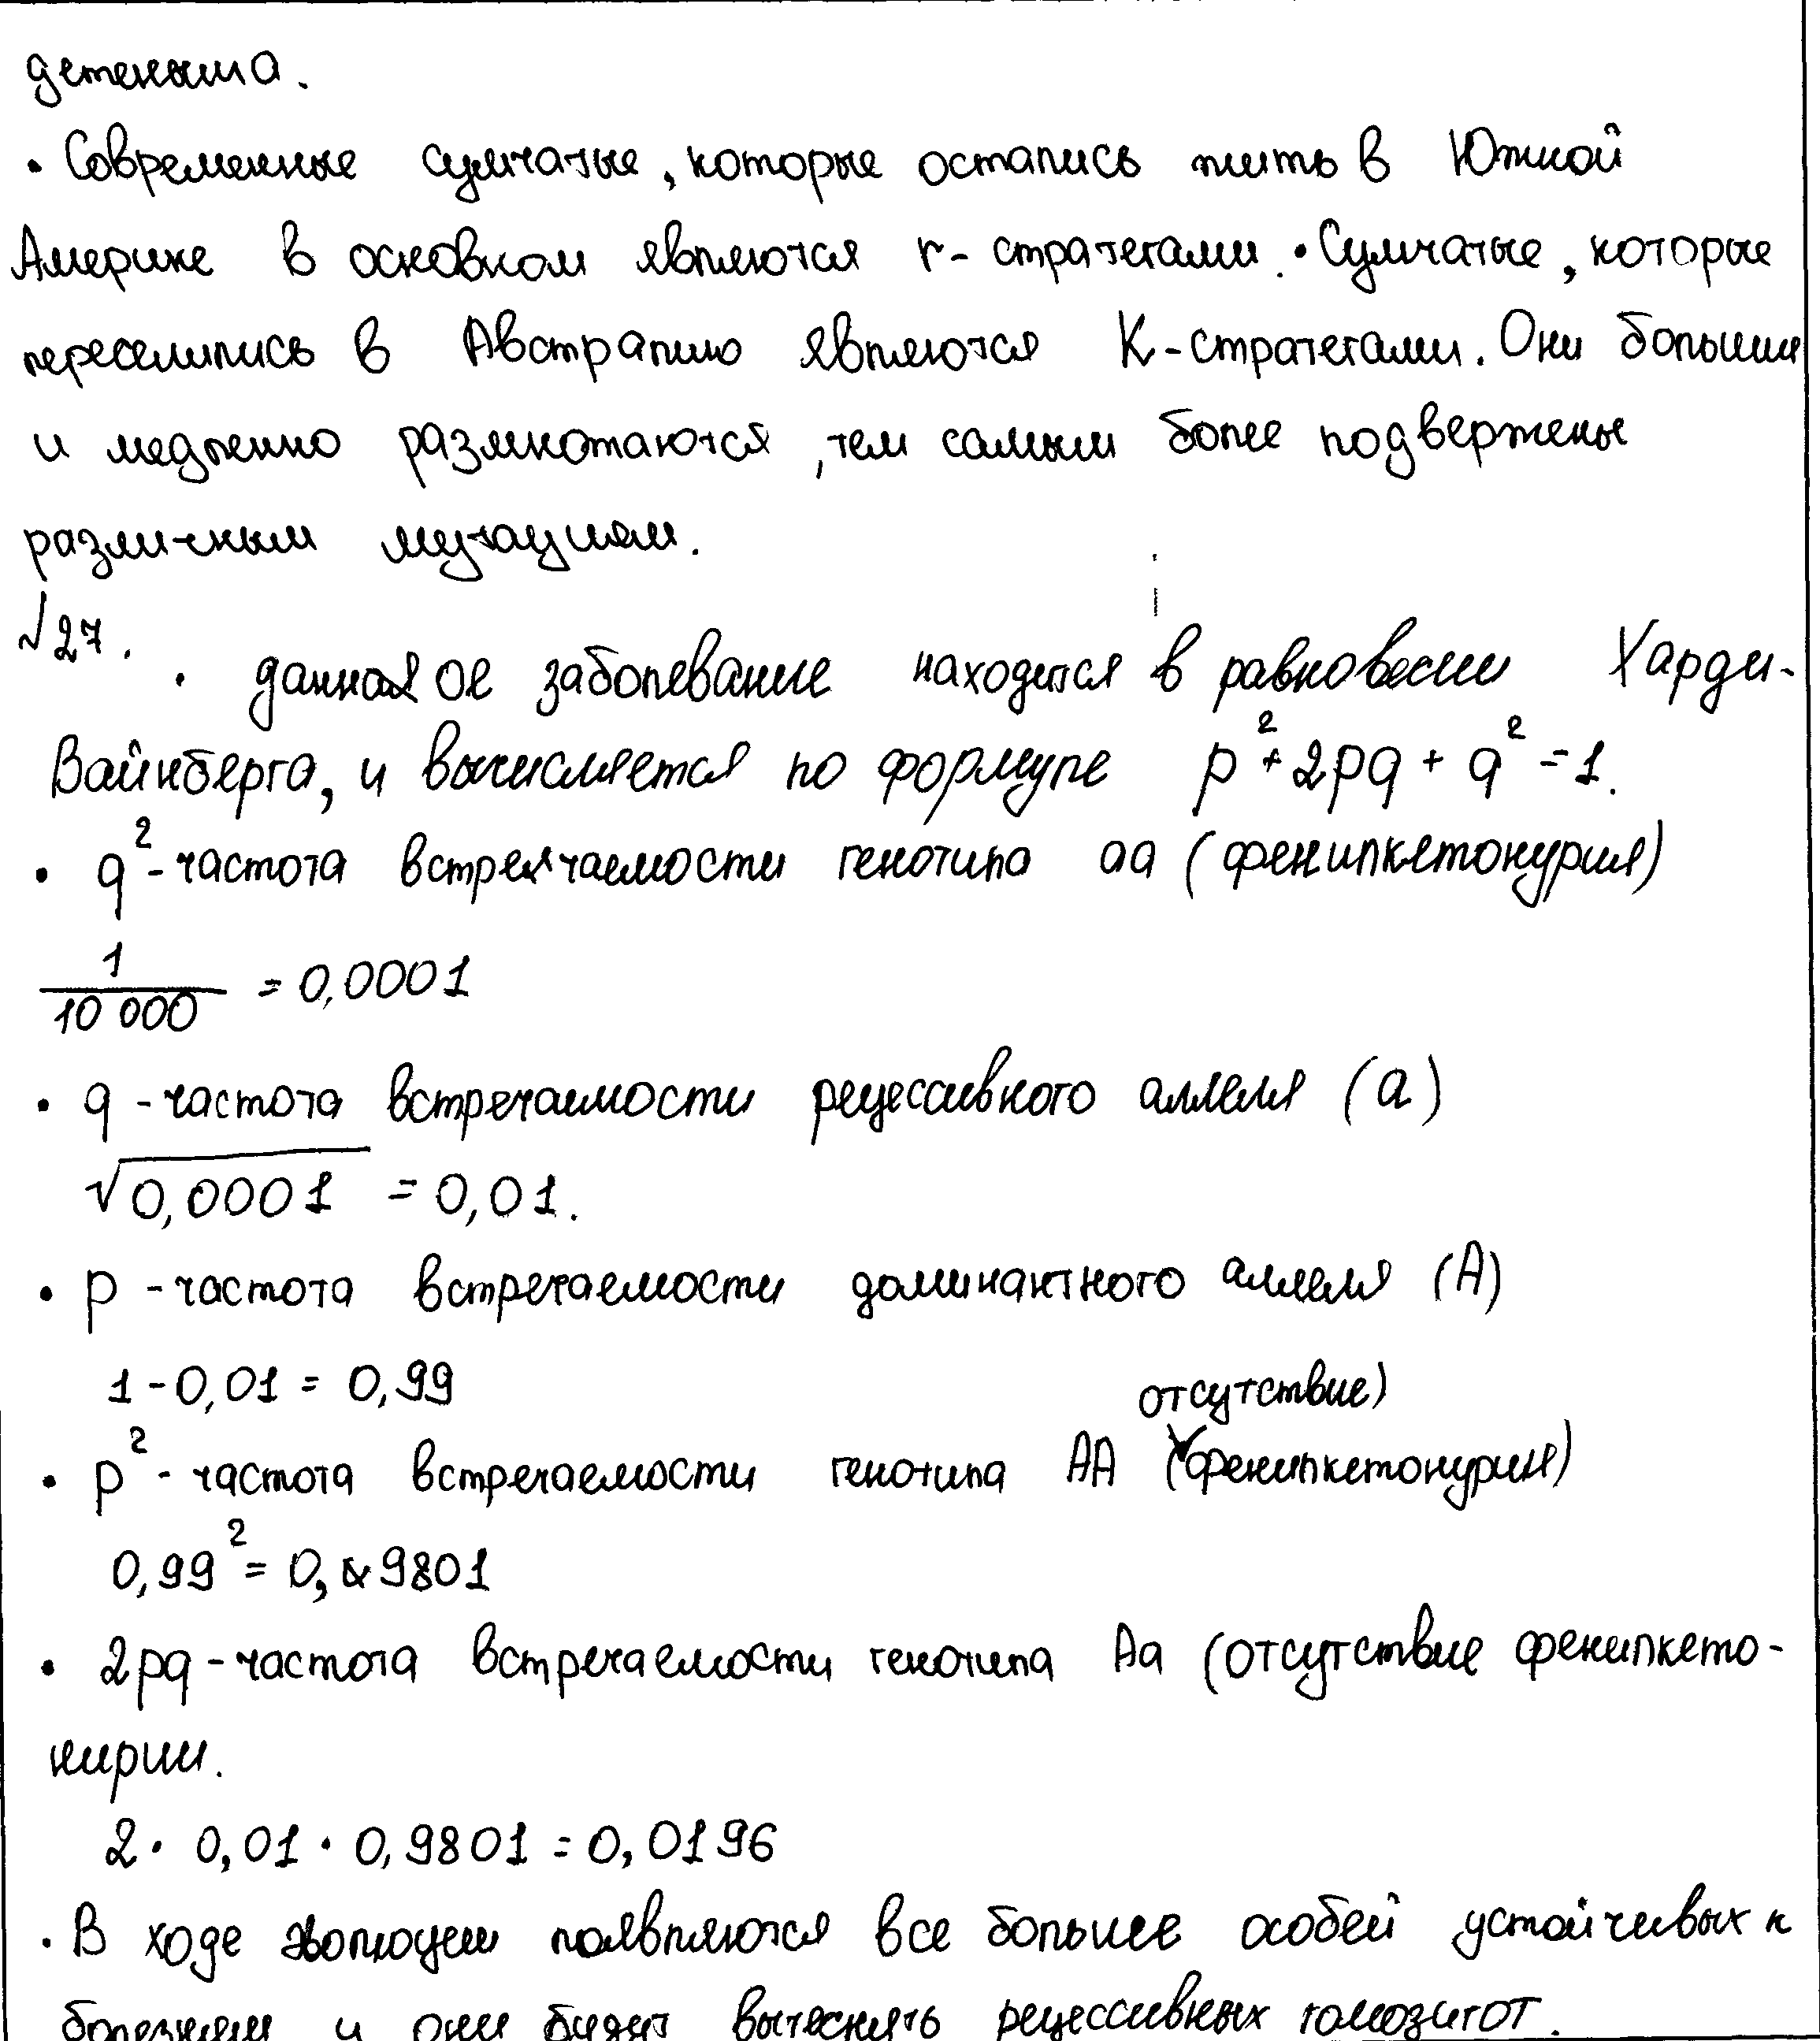 детеныша.
• Современные сумчатые, которые остались жить в Южной
Америке в основном являются r- стратегами. • Сумчатые, которые
переселились в Австралию являются K-стратегами. Они большие
и медленно размножаются, тем самым более подвержены
различным мутациям.
√27.
• данное заболевание находится в равновесии Харди-
Вайнберга, и вычисляется по формуле p² + 2pq + q² = 1.
• q² - частота встречаемости генотипа aa (фенилкетонурия)
1/10 000 = 0,0001
• q - частота встречаемости рецессивного аллеля (a)
√0,0001 = 0,01.
• p - частота встречаемости доминантного аллеля (A)
1 - 0,01 = 0,99
отсутствие)
• p² - частота встречаемости генотипа AA (фенилкетонурии)
0,99² = 0,9801
• 2pq - частота встречаемости генотипа Aa (отсутствие фенилкето-
нирии.
2 · 0,01 · 0,9801 = 0,0196
• В ходе эволюции появляются все больше особей устойчивых к
болезням и они будут вытеснять рецессивных гомозигот.